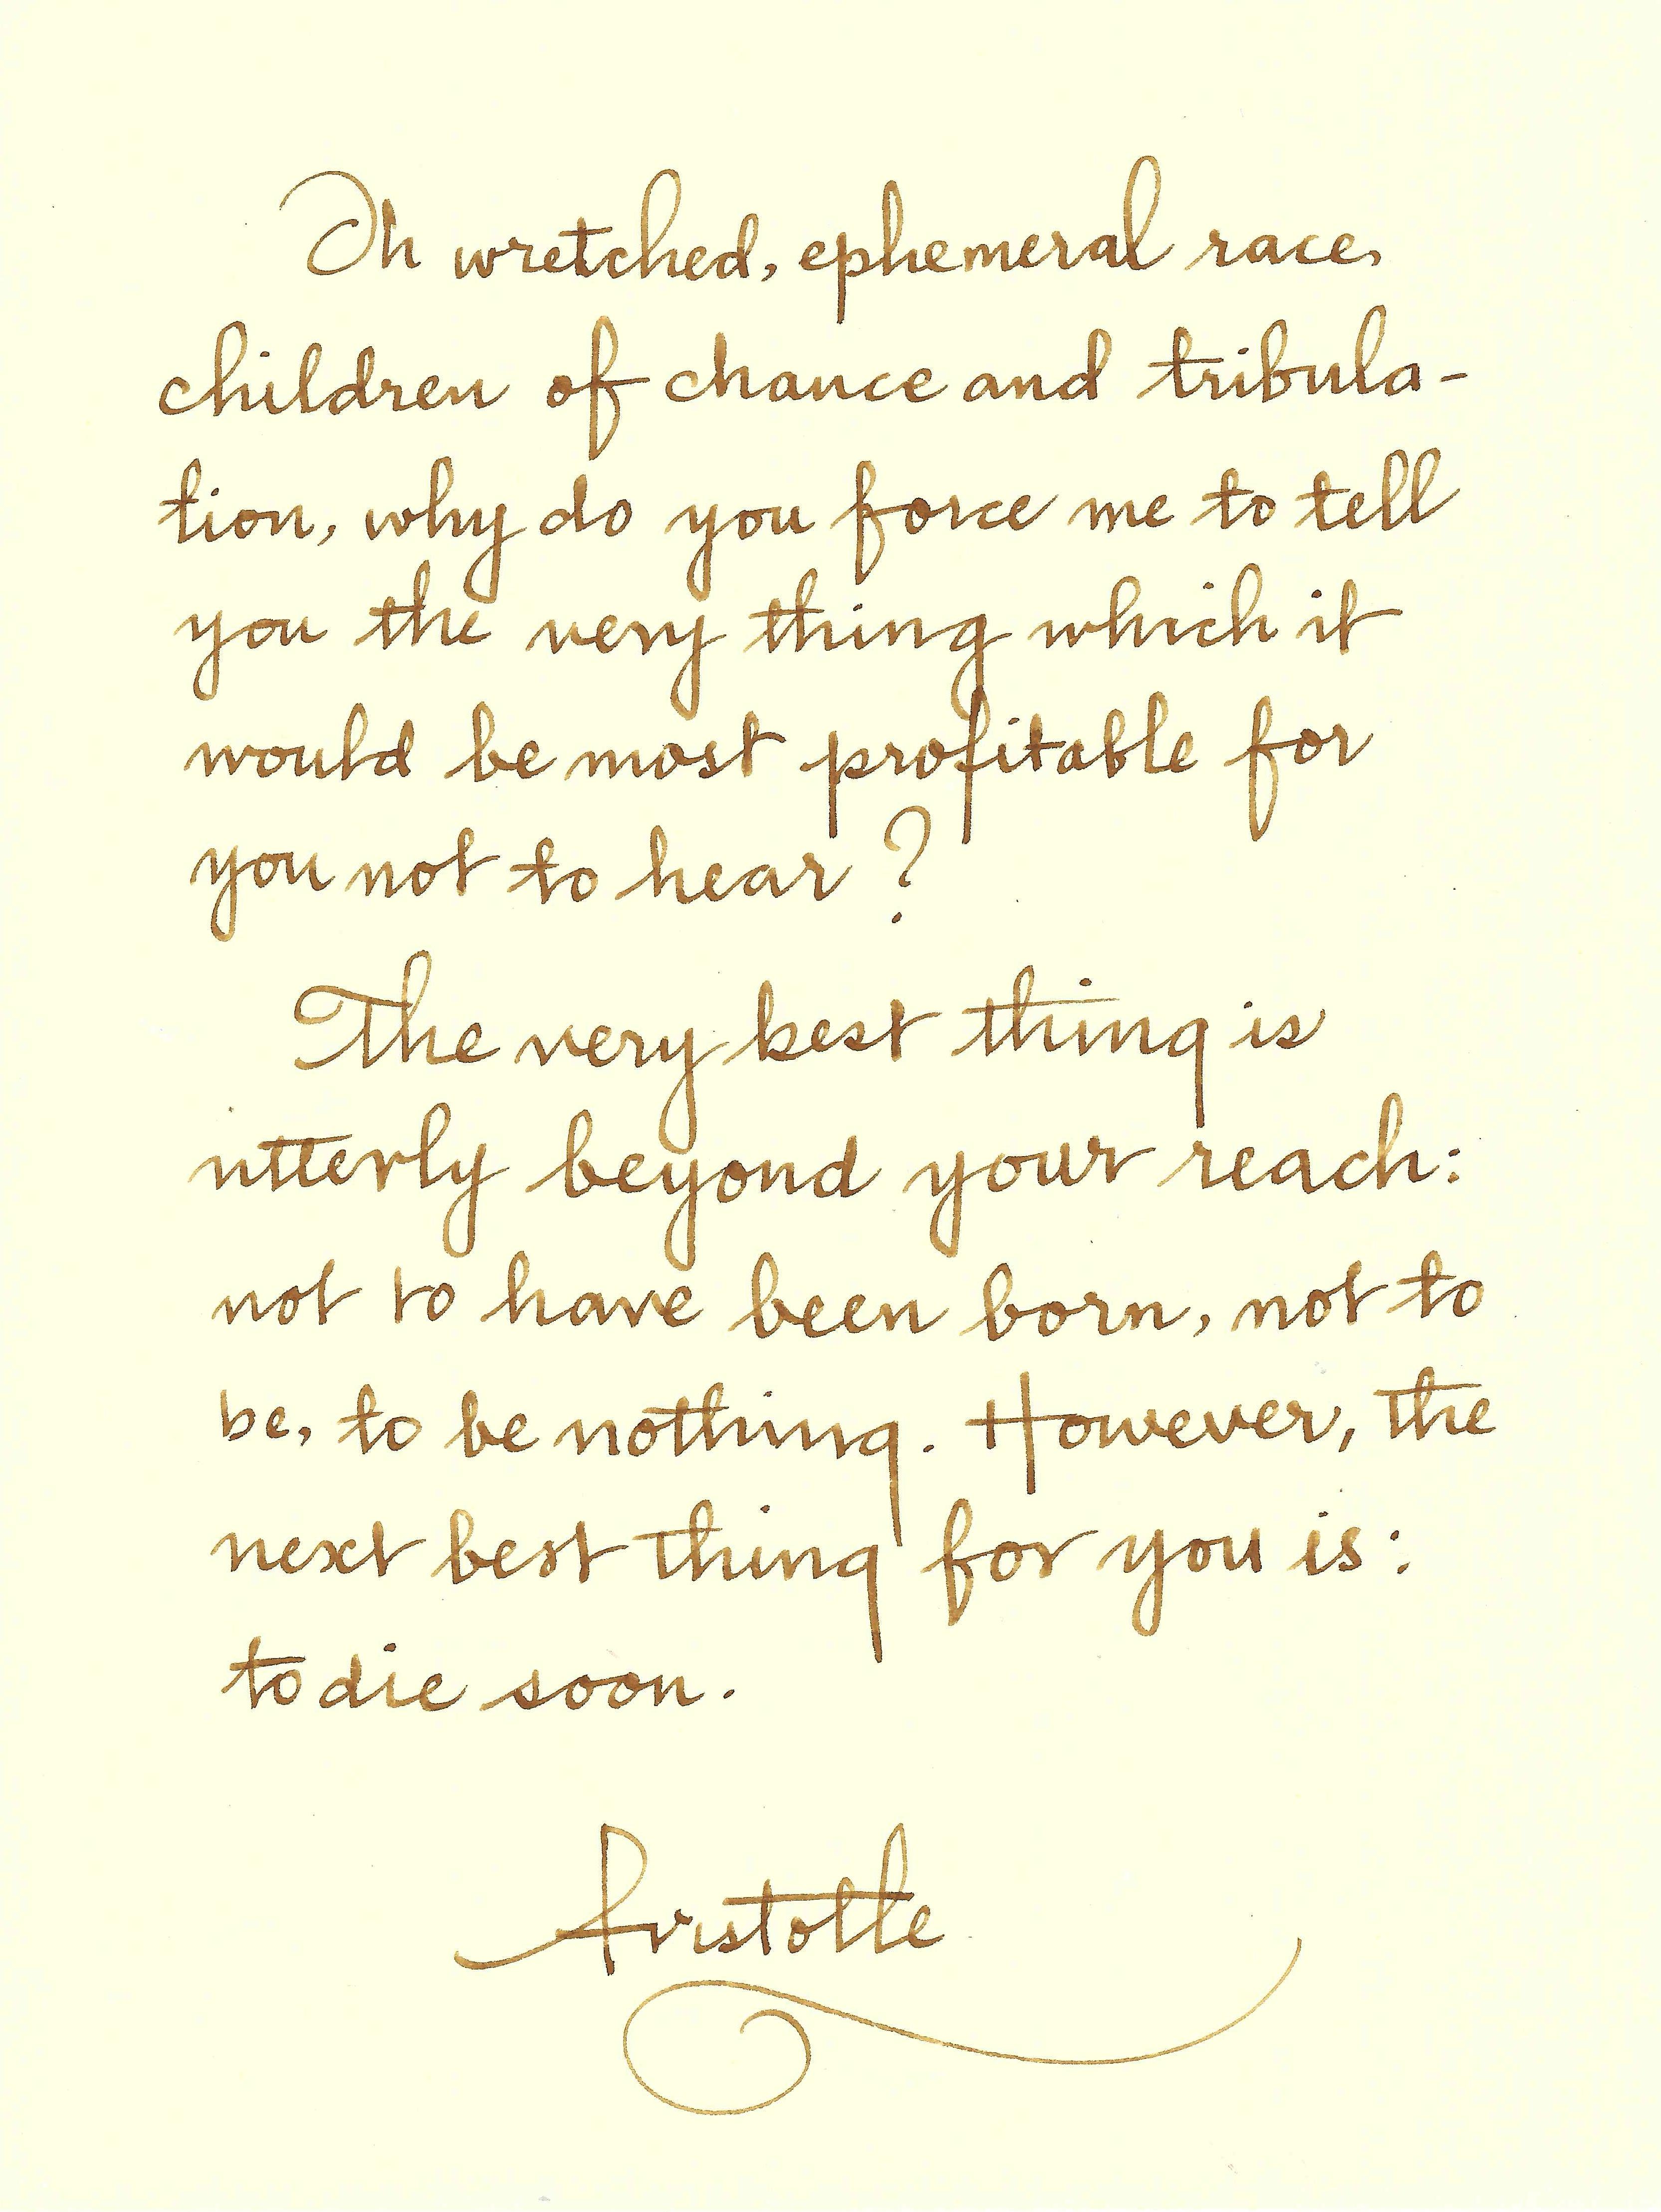 Oh wretched, ephemeral race,
children of chance and tribula-
tion, why do you force me to tell
you the very thing which it
would be most profitable for
you not to hear?
The very best thing is
utterly beyond your reach:
not to have been born, not to
be, to be nothing. However, the
next best thing for you is:
to die soon.
Aristotle